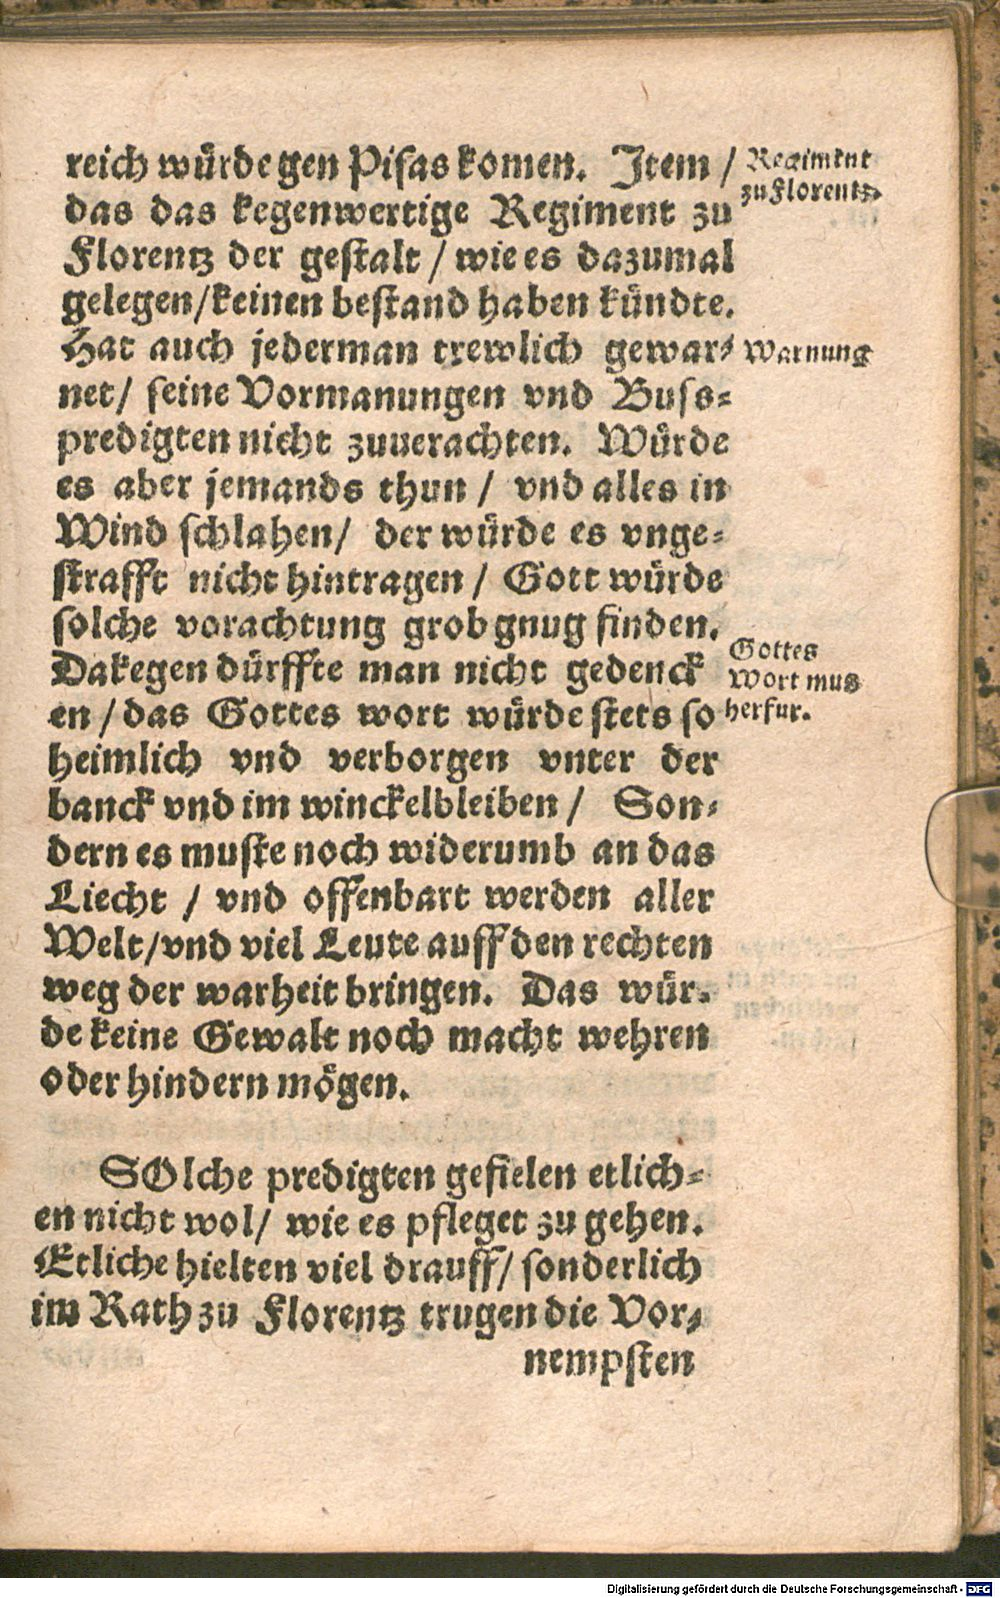 reich würde gen Pisas komen. Item /
das das kegenwertige Regiment zu
Florentz der gestalt / wie es dazumal
gelegen/keinen bestand haben kündte.
Hat auch jederman trewlich gewar-
net/ seine Vormanungen vnd Buss-
predigten nicht zuuerachten. Würde
es aber jemands thun / vnd alles in
Wind schlahen/ der würde es vnge-
strafft nicht hintragen / Gott würde
solche vorachtung grob gnug finden.
Dakegen dürffte man nicht gedenck
en / das Gottes wort würde stets so
heimlich vnd verborgen vnter der
banck vnd im winckel bleiben / Son-
dern es muste noch widerumb an das
Liecht / vnd offenbart werden aller
Welt/vnd viel Leute auff den rechten
weg der warheit bringen. Das wür-
de keine Gewalt noch macht wehren
oder hindern mögen.
SOlche predigten gefielen etlich-
en nicht wol/ wie es pfleget zu gehen.
Etliche hielten viel drauff/ sonderlich
im Rath zu Florentz trugen die Vor-
nempsten
Regiment
zu Florentz.
Warnung
Gottes
Wort mus
herfur.
Digitalisierung gefördert durch die Deutsche Forschungsgemeinschaft - DFG